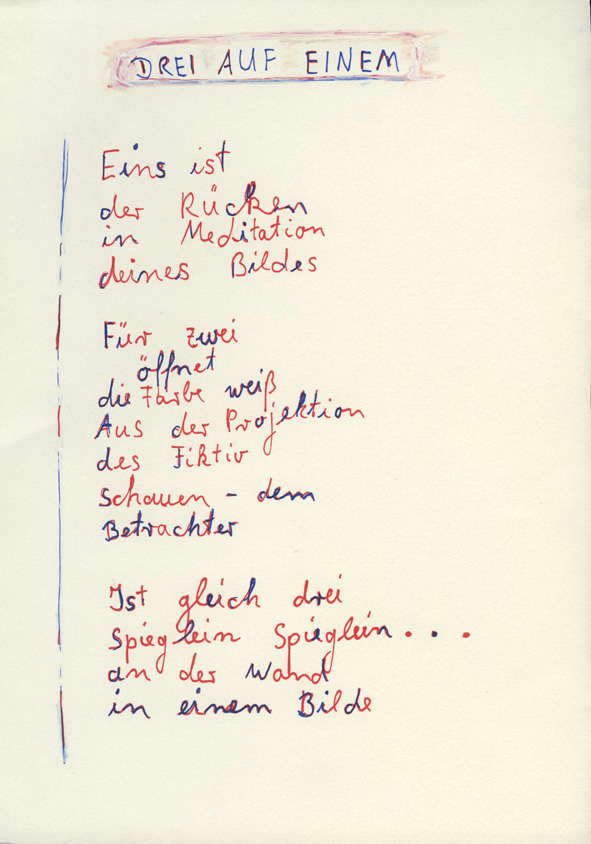 DREI AUF EINEM
Eins ist
der Rücken
in Meditation
deines Bildes
Für zwei
öffnet
die Farbe weiß
Aus der Projektion
des Fiktiv
schauen - dem
Betrachter
Ist gleich drei
Spieglein Spieglein...
an der Wand
in einem Bilde